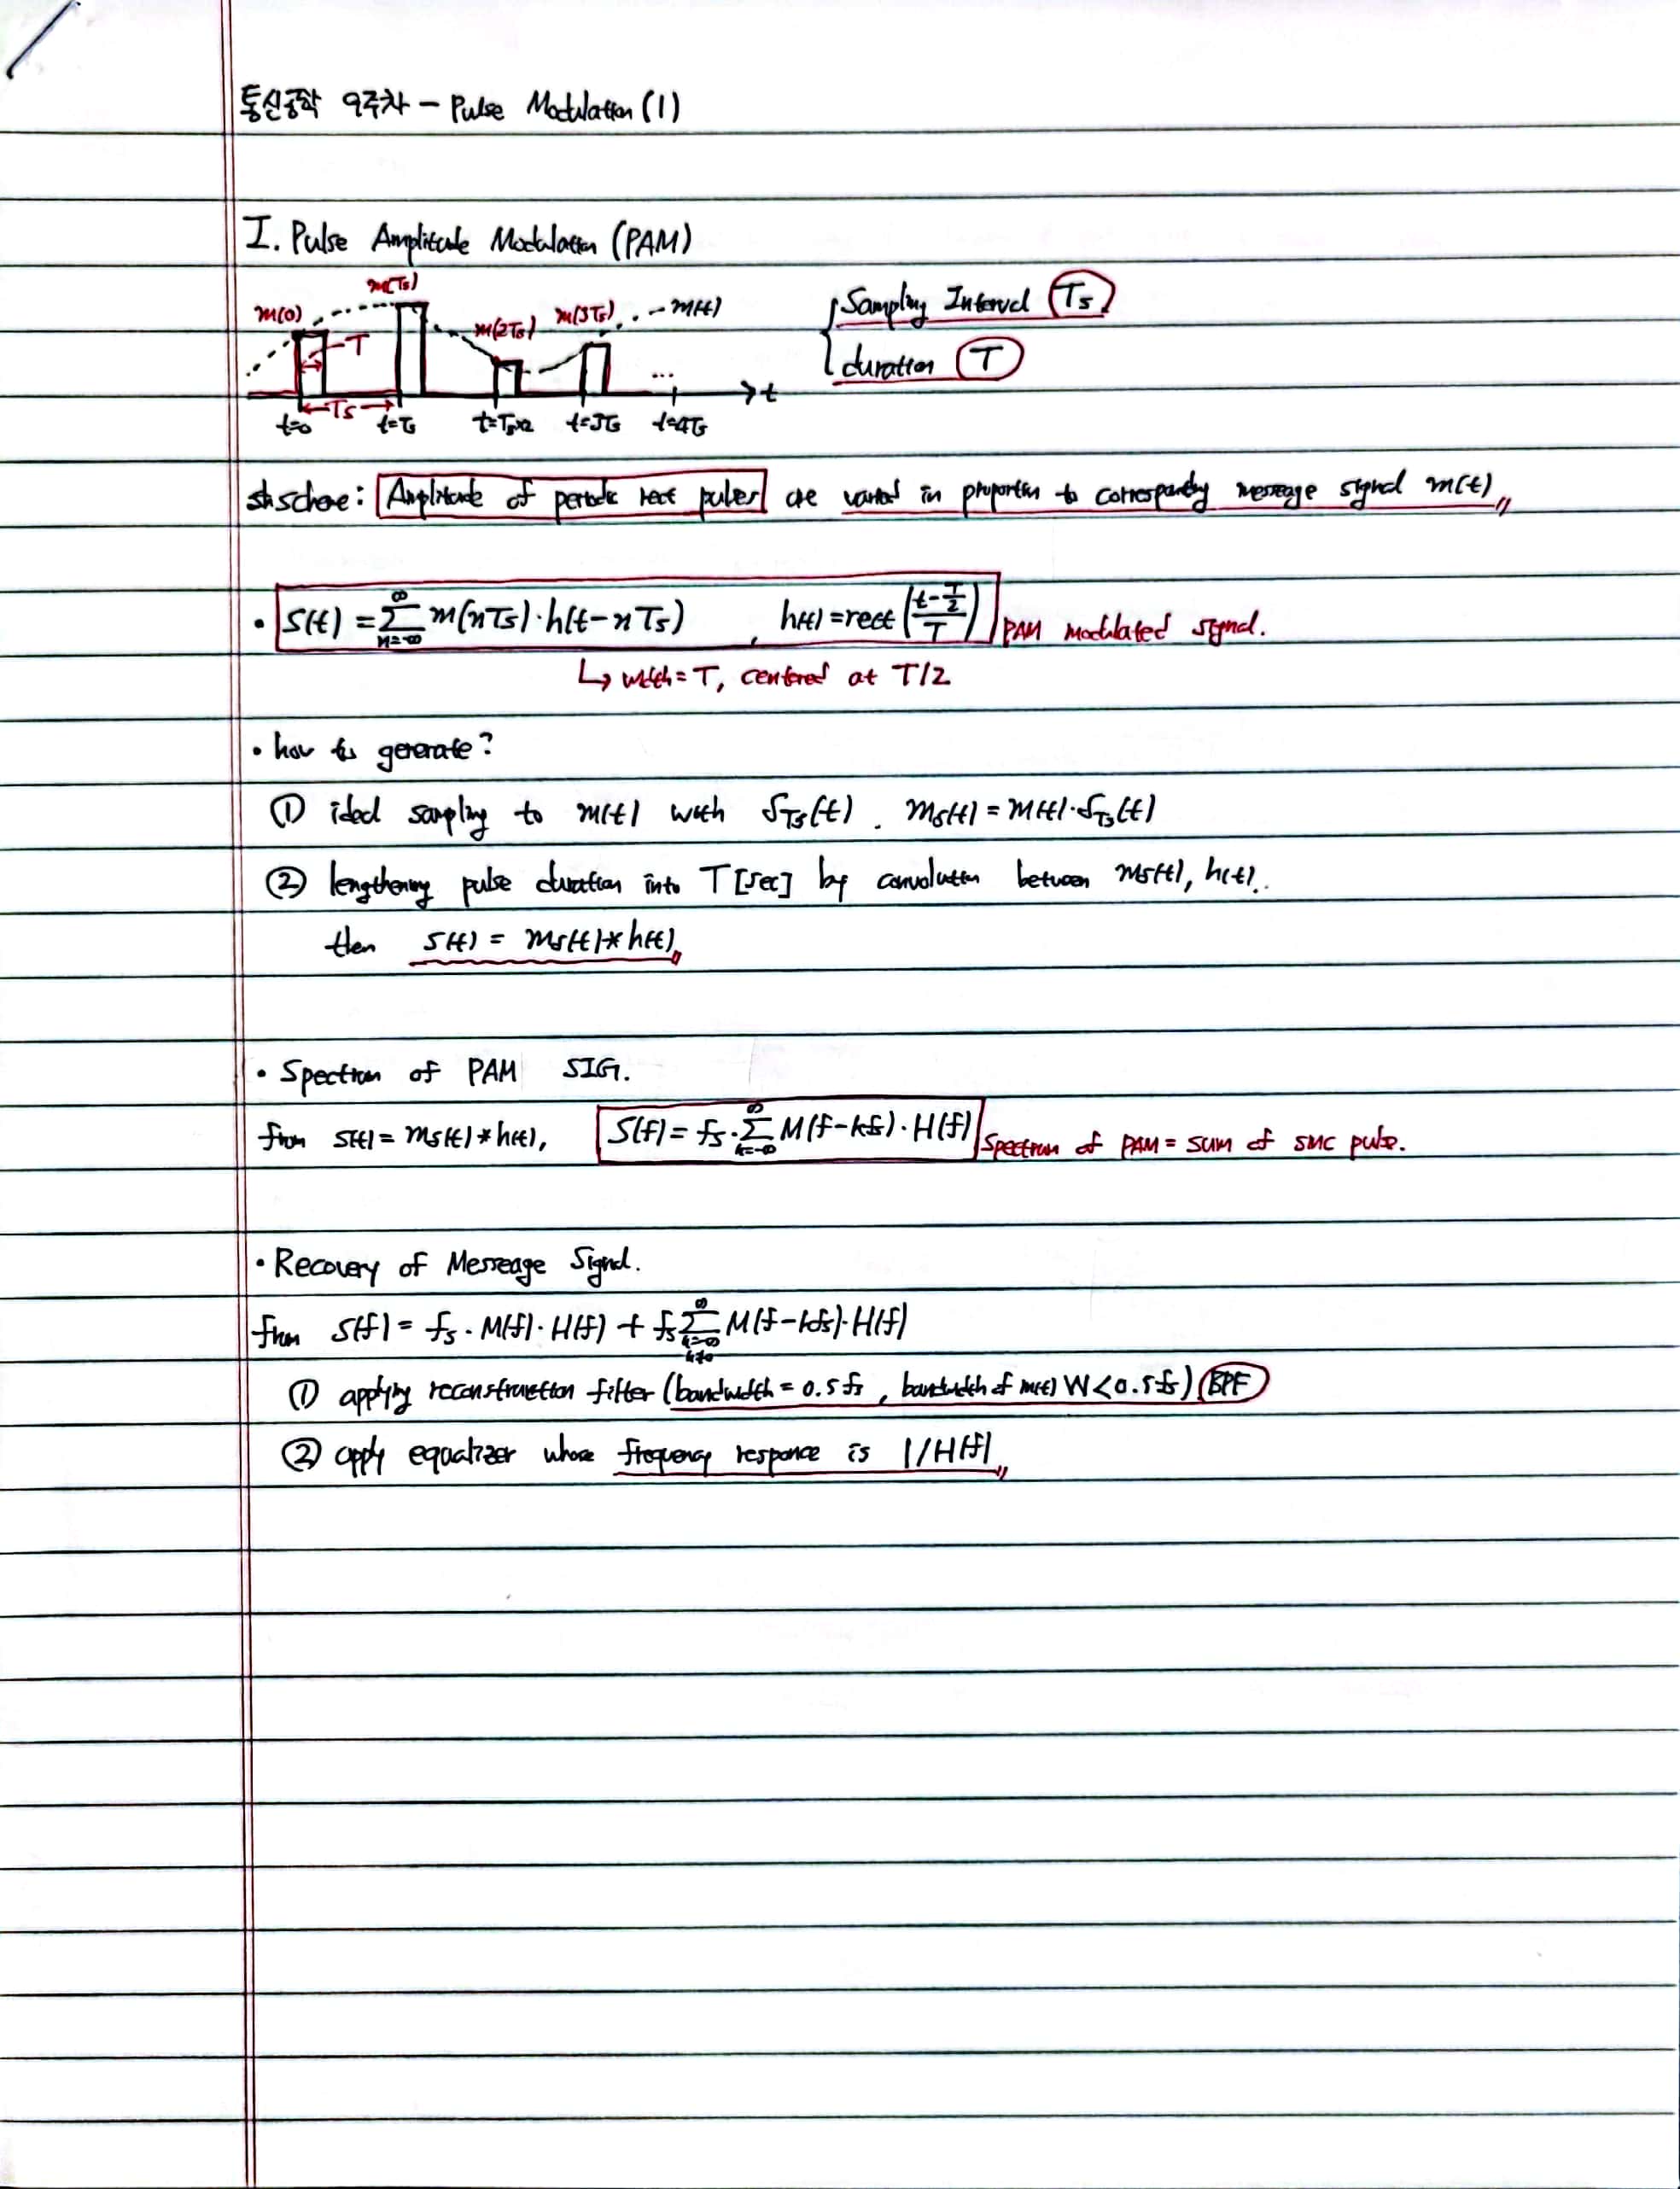 통신공학 9주차 - Pulse Modulation (1)
I. Pulse Amplitude Modulation (PAM)
m(0) m(Ts) m(2Ts) m(3Ts) m(t)
T
Ts
t=0 t=Ts t=Ts×2 t=3Ts ... t=4Ts t
Sampling Interval Ts
duration T
: Amplitude of periodic rect pulses are varied in proportion to corresponding message signal m(t)
• S(t) = ∑_{n=-∞}^{∞} m(nTs)·h(t-nTs) , h(t) = rect((t-T/2)/T) PAM modulated signal.
↳ width = T, centered at T/2
• how to generate?
① ideal sampling to m(t) with δTs(t). mδ(t) = m(t)·δTs(t)
② lengthening pulse duration into T [sec] by convolution between mδ(t), h(t).
then s(t) = mδ(t)*h(t)
• Spectrum of PAM SIG.
from s(t) = mδ(t)*h(t), S(f) = fs·∑_{k=-∞}^{∞} M(f-kfs)·H(f) Spectrum of PAM = sum of sinc pulse.
• Recovery of Message Signal.
from S(f) = fs·M(f)·H(f) + fs∑_{k=-∞, k≠0}^{∞} M(f-kfs)·H(f)
① applying reconstruction filter (bandwidth = 0.5fs, bandwidth of m(t) W<0.5fs) BPF
② apply equalizer whose frequency responce is 1/H(f)